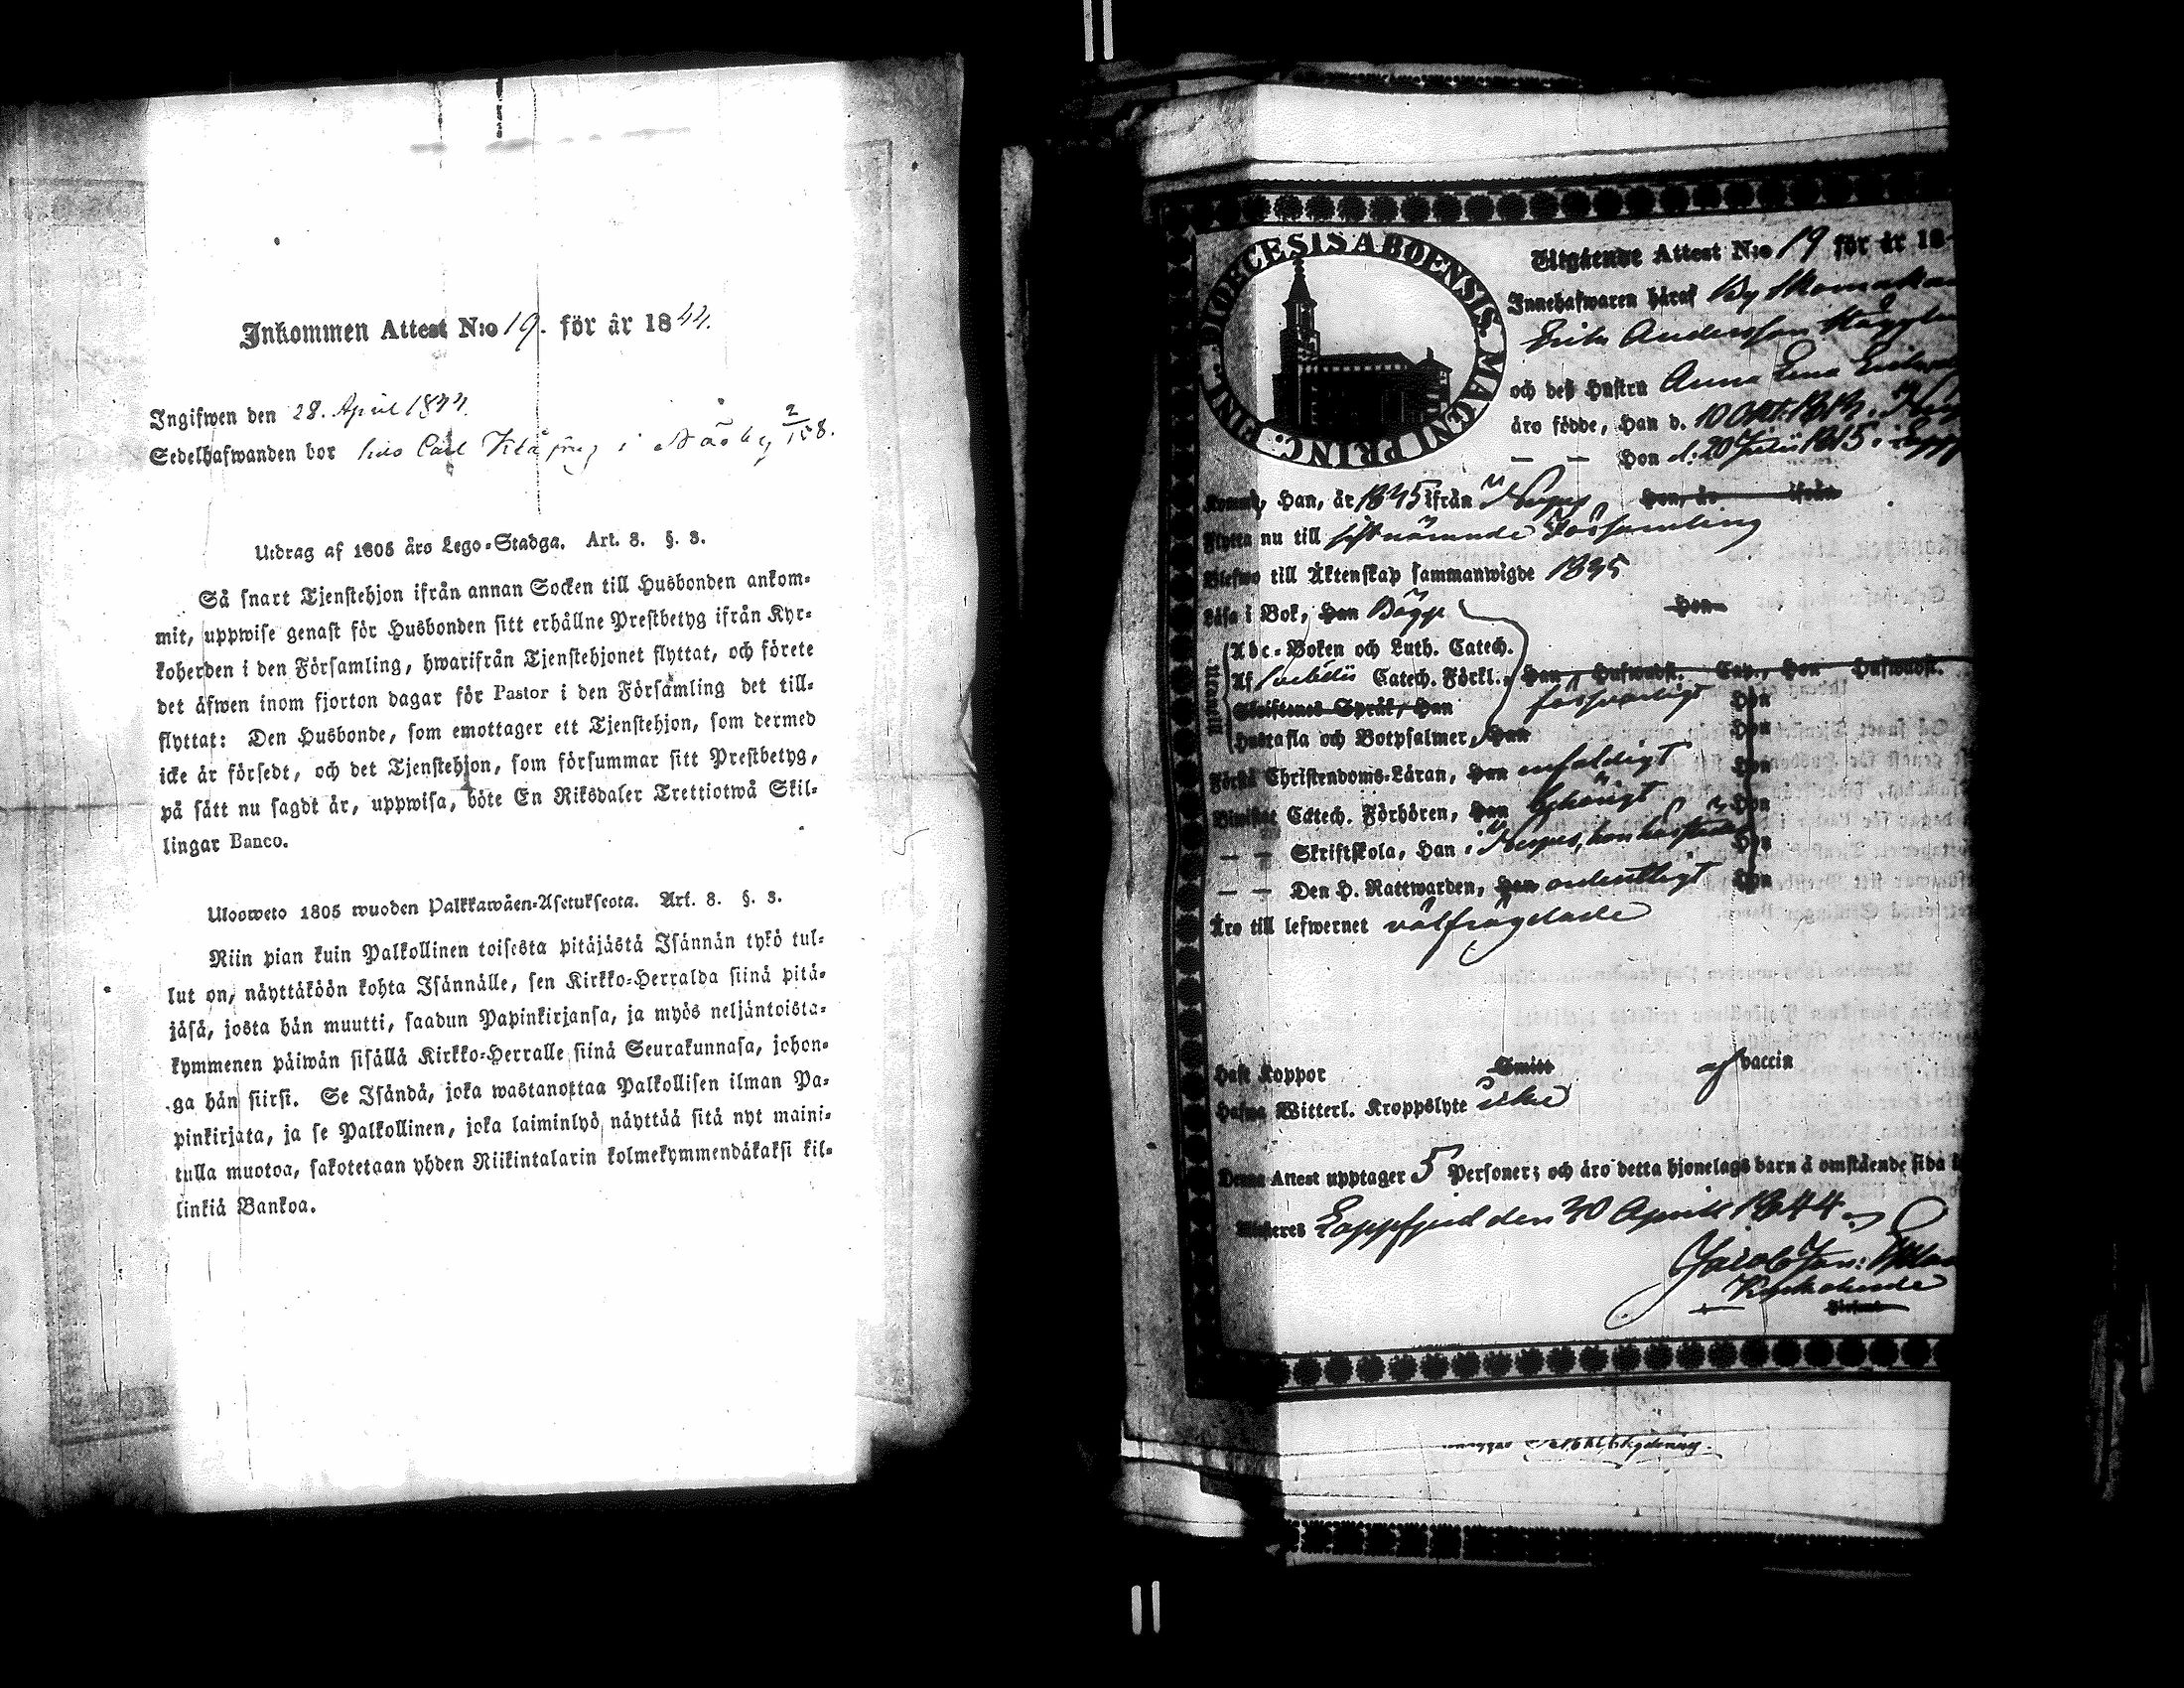 Inkommen Attest N:o 19. för år 1844.
Ingifwen den 28. April 1844.
Sedelhafwanden bor hos Carl i Näsby 2/158.
Utdrag af 1805 års Lego-Stadga. Art. 8. §. 3.
Så snart Tjenstehjon ifrån annan Socken till Husbonden ankom-
mit, uppwise genast för Husbonden sitt erhållne Prestbetyg ifrån Kyr-
koherden i den Församling, hwarifrån Tjenstehjonet flyttat, och förete
det äfwen inom fjorton dagar för Pastor i den Församling det till-
flyttat: Den Husbonde, som emottager ett Tjenstehjon, som dermed
icke är försedt, och det Tjenstehjon, som försummar sitt Prestbetyg,
på sätt nu sagdt är, uppwisa, böte En Riksdaler Trettiotwå Skil-
lingar Banco.
Uloosweto 1805 wuoden Palkkawäen-Asetuksesta. Art. 8. §. 3.
Niin pian kuin Palkollinen toisesta pitäjästä Isännän tykö tul-
lut on, näyttäköön kohta Isännälle, sen Kirkko-Herralda siinä pitä-
jäsä, josta hän muutti, saadun Papinkirjansa, ja myös neljäntoista-
kymmenen päiwän sisällä Kirkko-Herralle siinä Seurakunnasa, johon-
ga hän siirsi. Se Isändä, joka wastanottaa Palkollisen ilman Pa-
pinkirjata, ja se Palkollinen, joka laiminlyö näyttää sitä nyt maini-
tulla muotoa, sakotetaan yhden Riikintalarin kolmekymmendäkaksi kil-
linkiä Bankoa.
DIOECESIS ABOENSIS MAGNI PRINC. FINL.
Utgående Attest N:o 19 för år 18
Innehafwaren häraf By Skomakar
Erik Andersson Hägglu
och dess Hustru Anna Lena
äro födde, Han d. 10 Okt. 1812. i
— — Hon d. 20 Julii 1815. i Lapp
Kommo, Han, år 1835 ifrån Hon, år ifrån
Flytta nu till sistnämnde Församling
Blefwo till Äktenskap sammanwigde 1835
Läsa i Bok, Han Hon
Utanell
Abc-Boken och Luth. Catech.
Af Svebilii Catech. Förkl., Han, Hufwudst. Cap., Hon Hufwudst.
Skriftenes Språk, Han försvarligt Hon
Hustafla och Botpsalmer, Han Hon
Förstå Christendoms-Läran, Han enfaldigt Hon
Biwistat Catech. Förhören, Han behörigt Hon
— — Skriftskola, Han i Hon
— — Den H. Nattwarden, Han ordentligt Hon
Äro till lefwernet välfrägdade
Haft Koppor Smitt af vaccin
Hafwa Witterl. Kroppslyte icke
Denna Attest upptager 5 Personer; och äro detta hjonelags barn å omstående sida
Attesteres Lappfjerd den 30 April 1844.
Jacob Joh:
Kyrkoherde